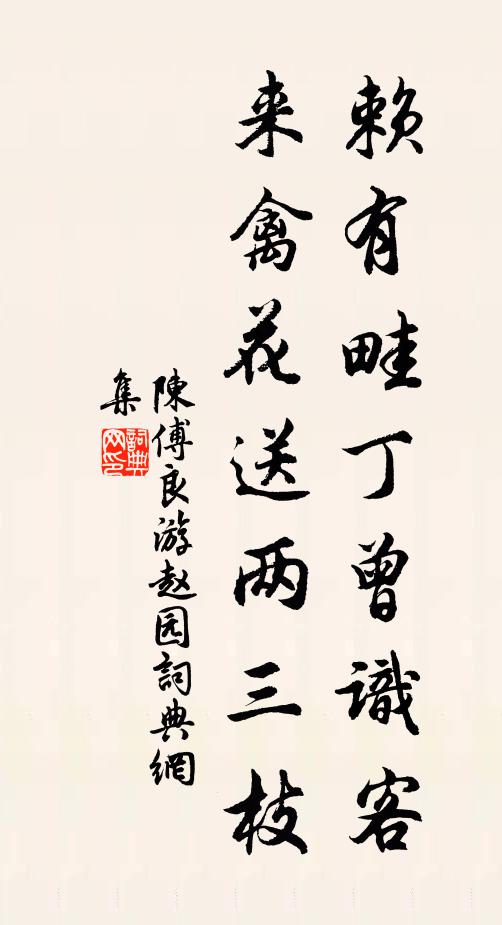 赖有畦丁曾識客
来禽花送两三枝
陳傅良游赵园詞典網
集
詞典网印